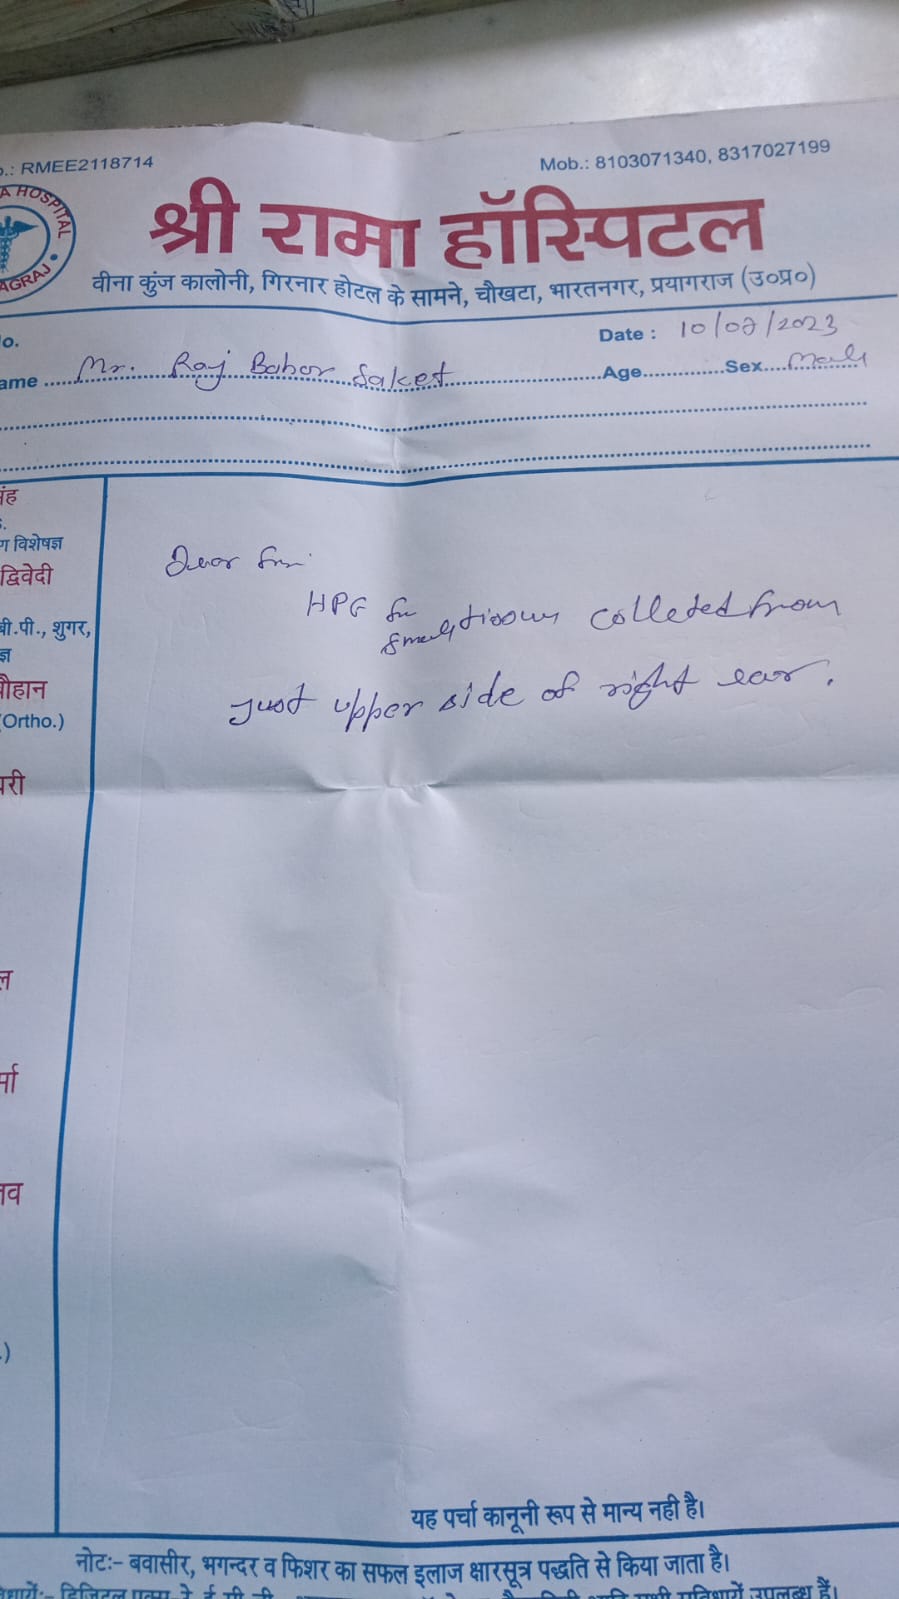 o.: RMEE2118714
Mob.: 8103071340, 8317027199
A HOSPITAL
AGRAJ
श्री रामा हॉस्पिटल
वीना कुंज कालोनी, गिरनार होटल के सामने, चौखटा, भारतनगर, प्रयागराज (उ०प्र०)
o.
Date : 10/07/2023
ame Mr. Raj Bahor Saket Age Sex Male
ंह
ग विशेषज्ञ
द्विवेदी
बी.पी., शुगर,
ज्ञ
ौहान
(Ortho.)
परी
ल
र्मा
तव
.)
Dear Sir.
HPE for
small tissue colleted from
just upper side of right ear.
यह पर्चा कानूनी रूप से मान्य नही है।
नोटः- बवासीर, भगन्दर व फिशर का सफल इलाज क्षारसूत्र पद्धति से किया जाता है।
उपलब्ध हैं।